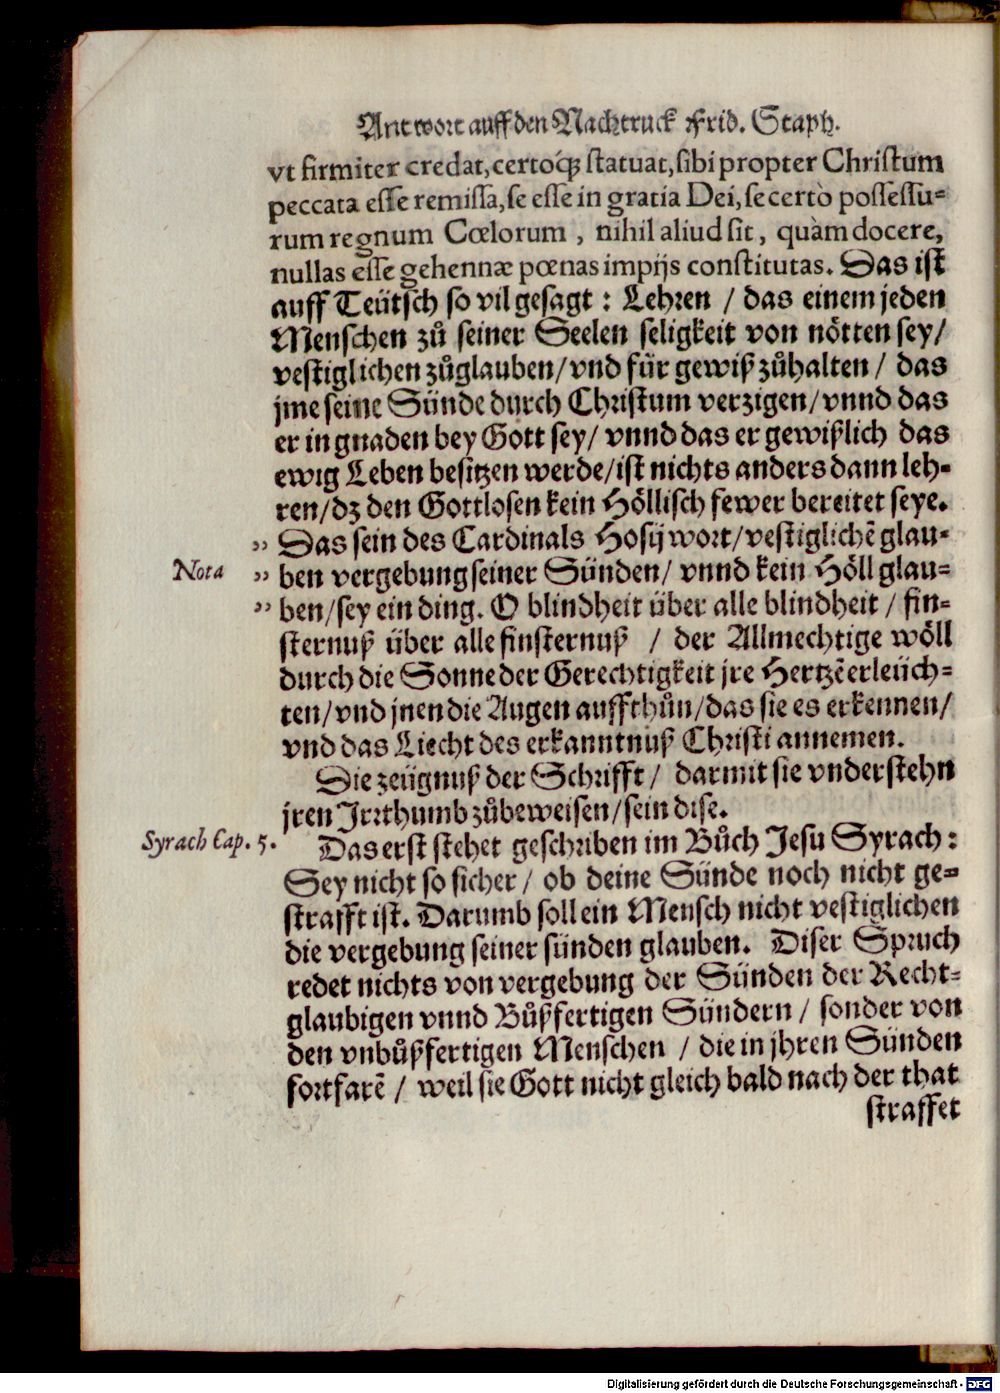 Antwort auff den Nachtruck Frid. Staph.
vt firmiter credat, certoq́; statuat, sibi propter Christum
peccata esse remissa, se esse in gratia Dei, se certò possessu-
rum regnum Cœlorum, nihil aliud sit, quàm docere,
nullas esse gehennæ pœnas impijs constitutas. Das ist
auff Teütsch so vil gesagt: Lehren / das einem jeden
Menschen zů seiner Seelen seligkeit von nötten sey/
vestiglichen zůglauben/ vnd für gewiß zůhalten / das
jme seine Sünde durch Christum verzigen/ vnnd das
er in gnaden bey Gott sey/ vnnd das er gewißlich das
ewig Leben besitzen werde/ ist nichts anders dann leh-
ren/ dz den Gottlosen kein Höllisch fewer bereitet seye.
„ Das sein des Cardinals Hosij wort/ vestiglichẽ glau-
Nota „ ben vergebung seiner Sünden/ vnnd kein Höll glau-
„ ben/ sey ein ding. O blindheit über alle blindheit / fin-
sternuß über alle finsternuß / der Allmechtige wöll
durch die Sonne der Gerechtigkeit jre Hertzẽ erleüch-
ten/ vnd jnen die Augen auffthůn/ das sie es erkennen/
vnd das Liecht des erkanntnuß Christi annemen.
Die zeügnuß der Schrifft / darmit sie vnderstehn
jren Jrrthumb zůbeweisen/ sein dise.
Syrach Cap. 5. Das erst stehet geschriben im Bůch Jesu Syrach:
Sey nicht so sicher / ob deine Sünde noch nicht ge-
strafft ist. Darumb soll ein Mensch nicht vestiglichen
die vergebung seiner sünden glauben. Diser Spruch
redet nichts von vergebung der Sünden der Recht-
glaubigen vnnd Bůßfertigen Sündern / sonder von
den vnbůßfertigen Menschen / die in jhren Sünden
fortfarẽ / weil sie Gott nicht gleich bald nach der that
straffet
Digitalisierung gefördert durch die Deutsche Forschungsgemeinschaft - DFG